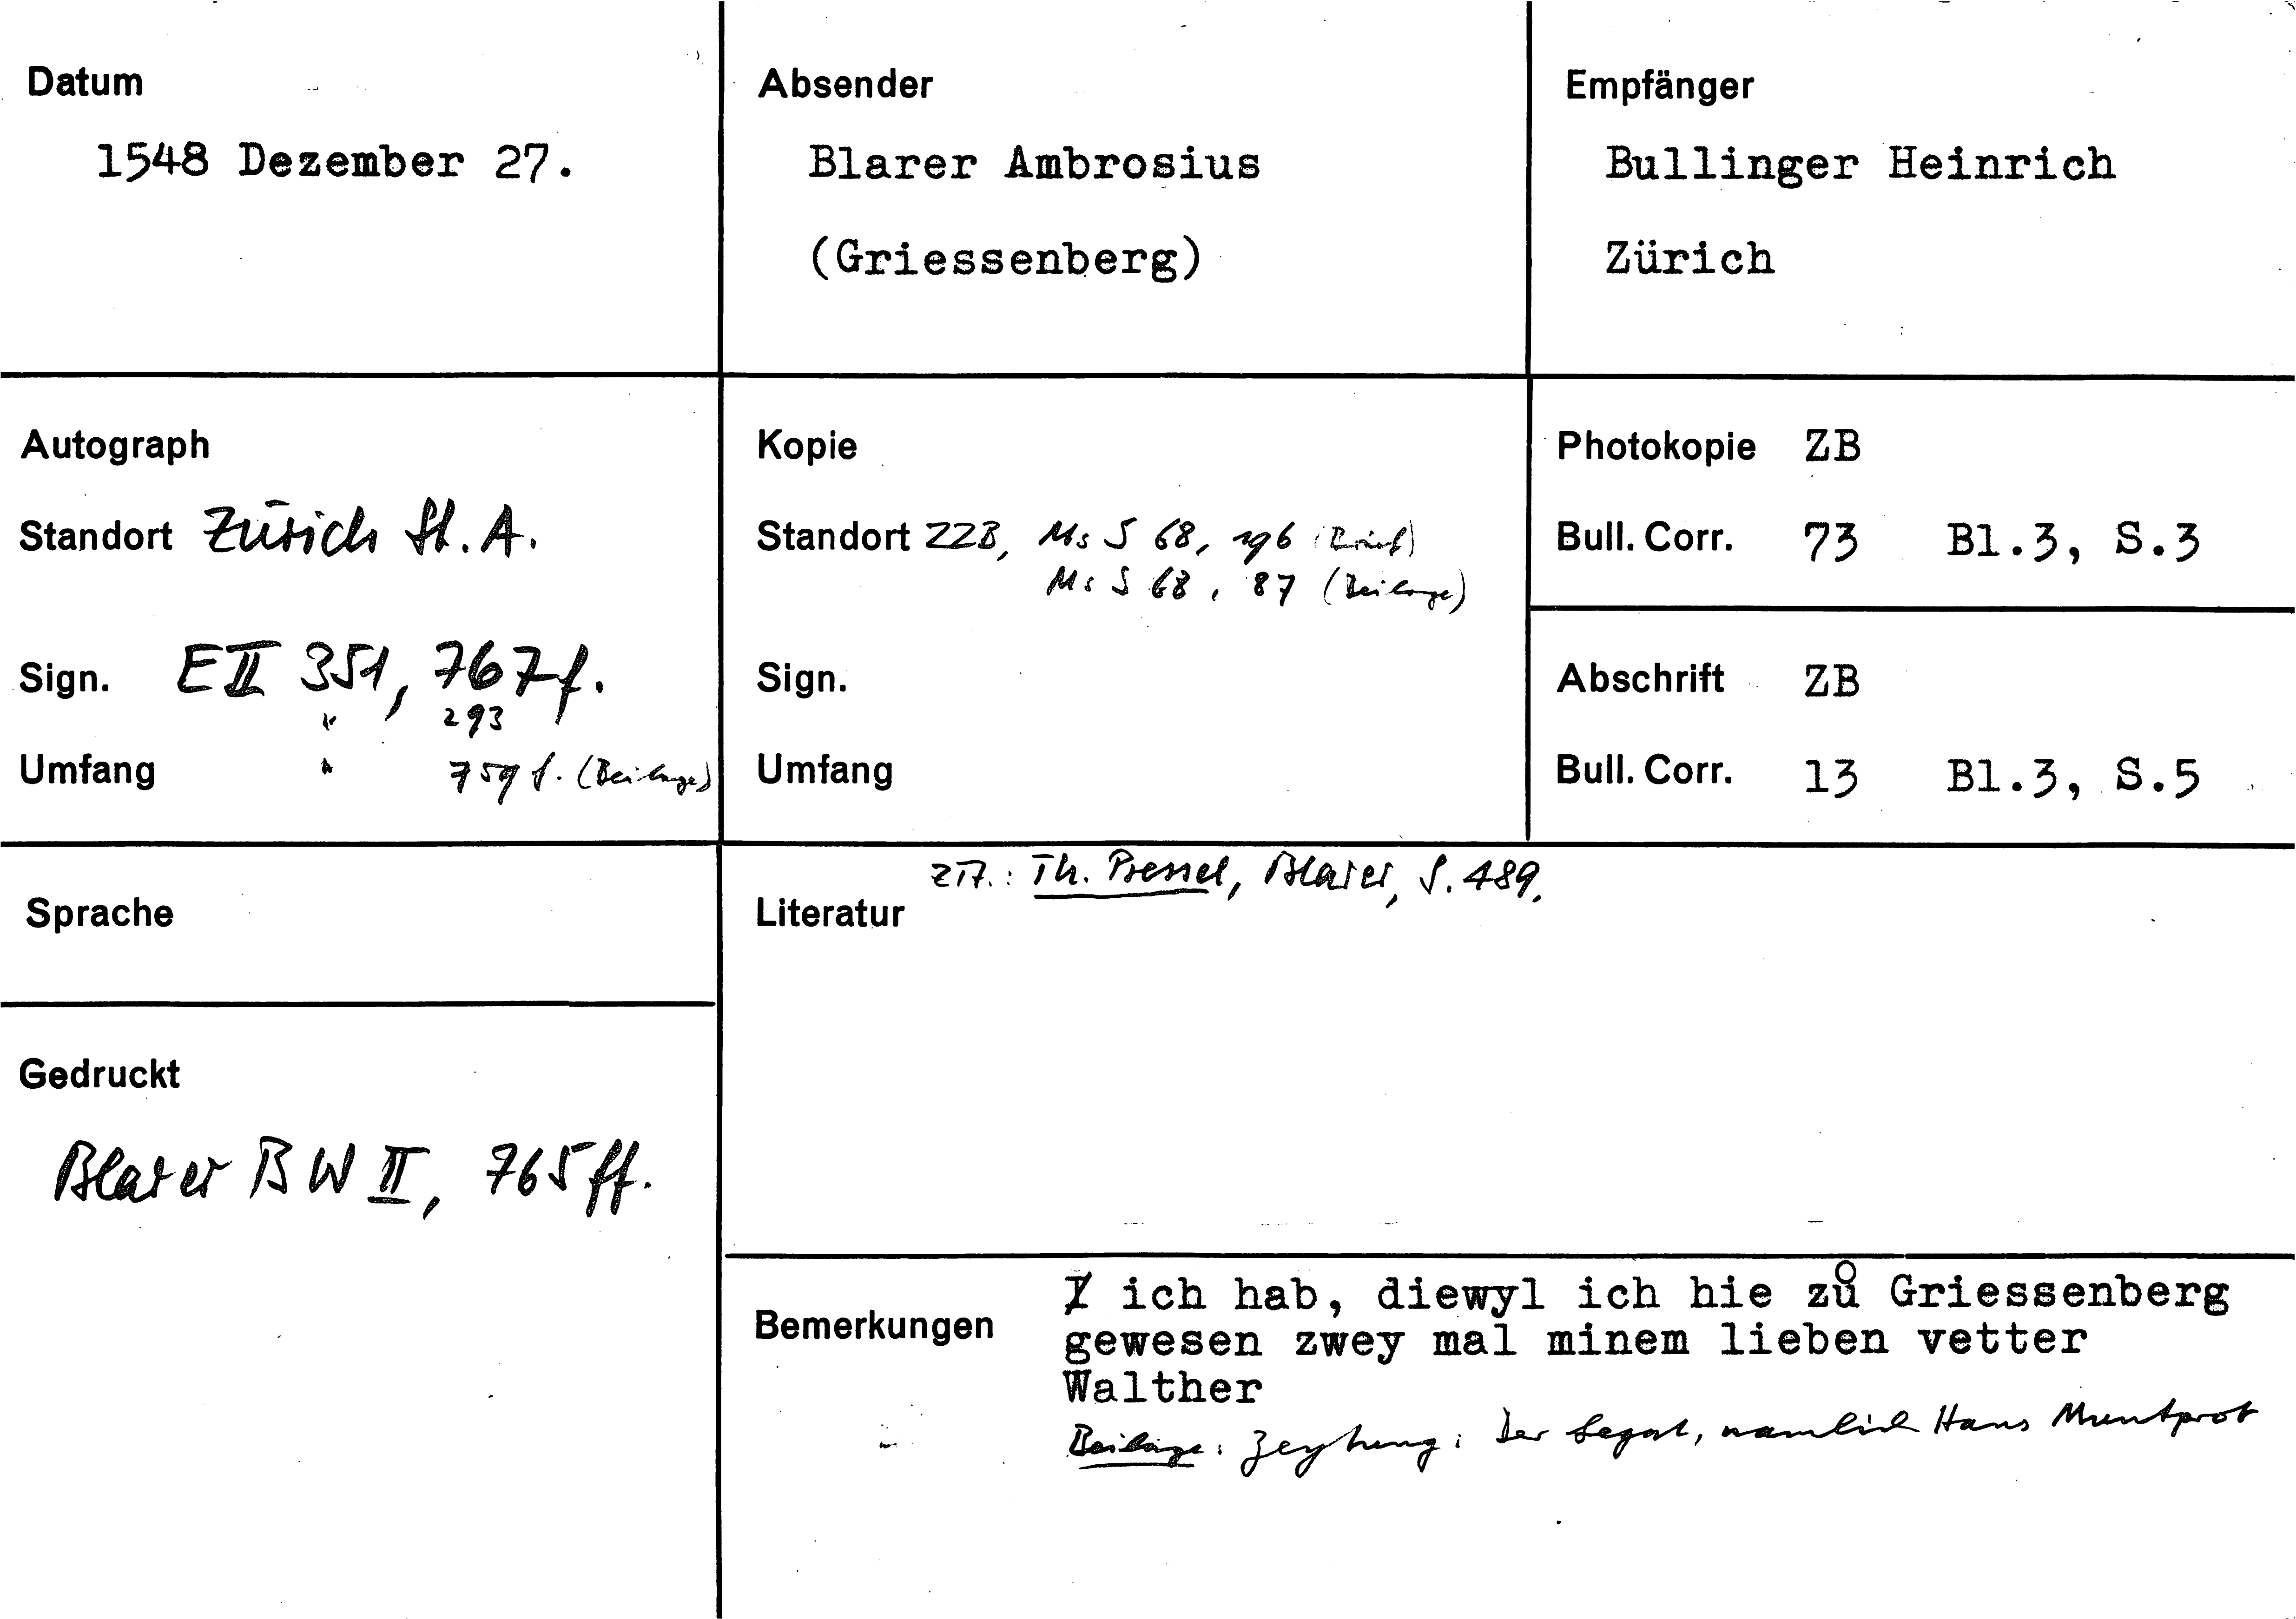 Datum
1548 Dezember 27.
Absender
Blarer Ambrosius
(Griessenberg)
Empfänger
Bullinger Heinrich
Zürich
Autograph
Standort Zürich St. A.
Sign. E II 351, 767f.
" 293
Umfang " 759 f. (Beilage)
Kopie
Standort ZZB, Ms S 68, 196 (Brief)
Ms S 68, 87 (Beilage)
Sign.
Umfang
Photokopie ZB
Bull. Corr. 73 Bl.3, S.3
Abschrift ZB
Bull. Corr. 13 Bl.3, S.5
Sprache
Gedruckt
Blarer BW II, 765 ff.
Zit.: Th. Pressel, Blarer, S. 489.
Literatur
Bemerkungen
ich hab, diewyl ich hie zů Griessenberg
gewesen zwey mal minem lieben vetter
Walther
Beilage: Zeytung: Der Legat, namlich Hans Muntprot